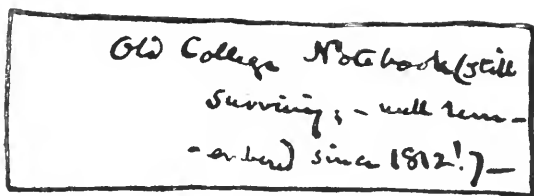 Old College Notebook (still
surviving; – well rem-
-embered since 1812!) –